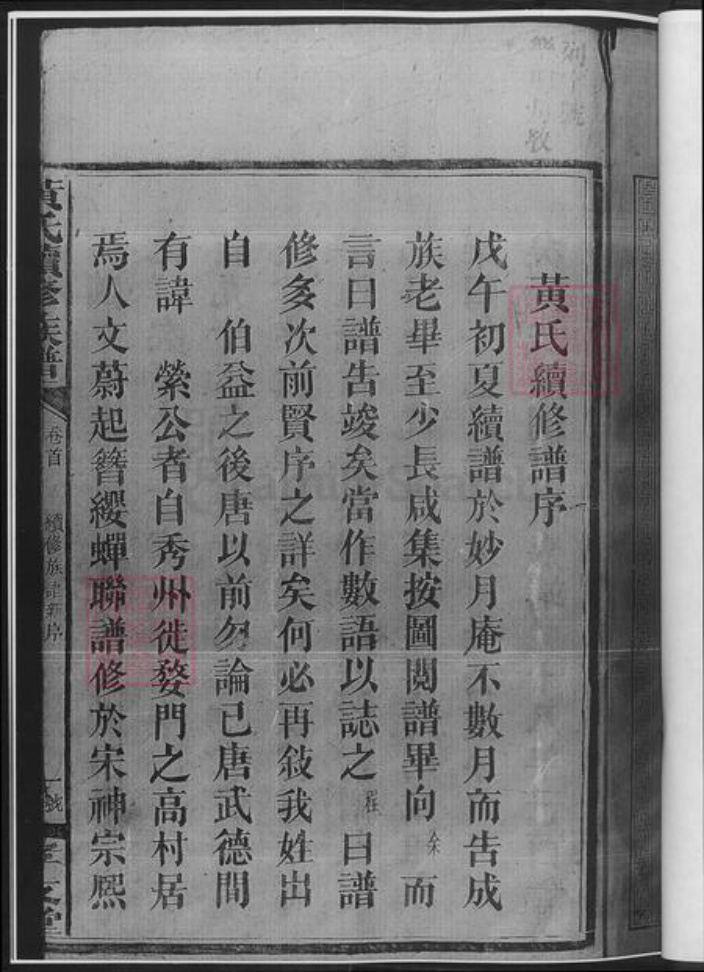 黃氏續修譜序
戊午初夏續譜於妙月庵不數月而告成
族老畢至少長咸集按圖閱譜畢向余而
言曰譜告竣矣當作數語以誌之 曰譜
修多次前賢序之詳矣何必再敍我姓出
自 伯益之後唐以前勿論已唐武德間
有諱 縈公者自秀州徙婺門之高村居
焉人文蔚起簪纓蟬聯譜修於宋神宗熙
黃氏續修族譜 卷首 續修族譜新序 一 號